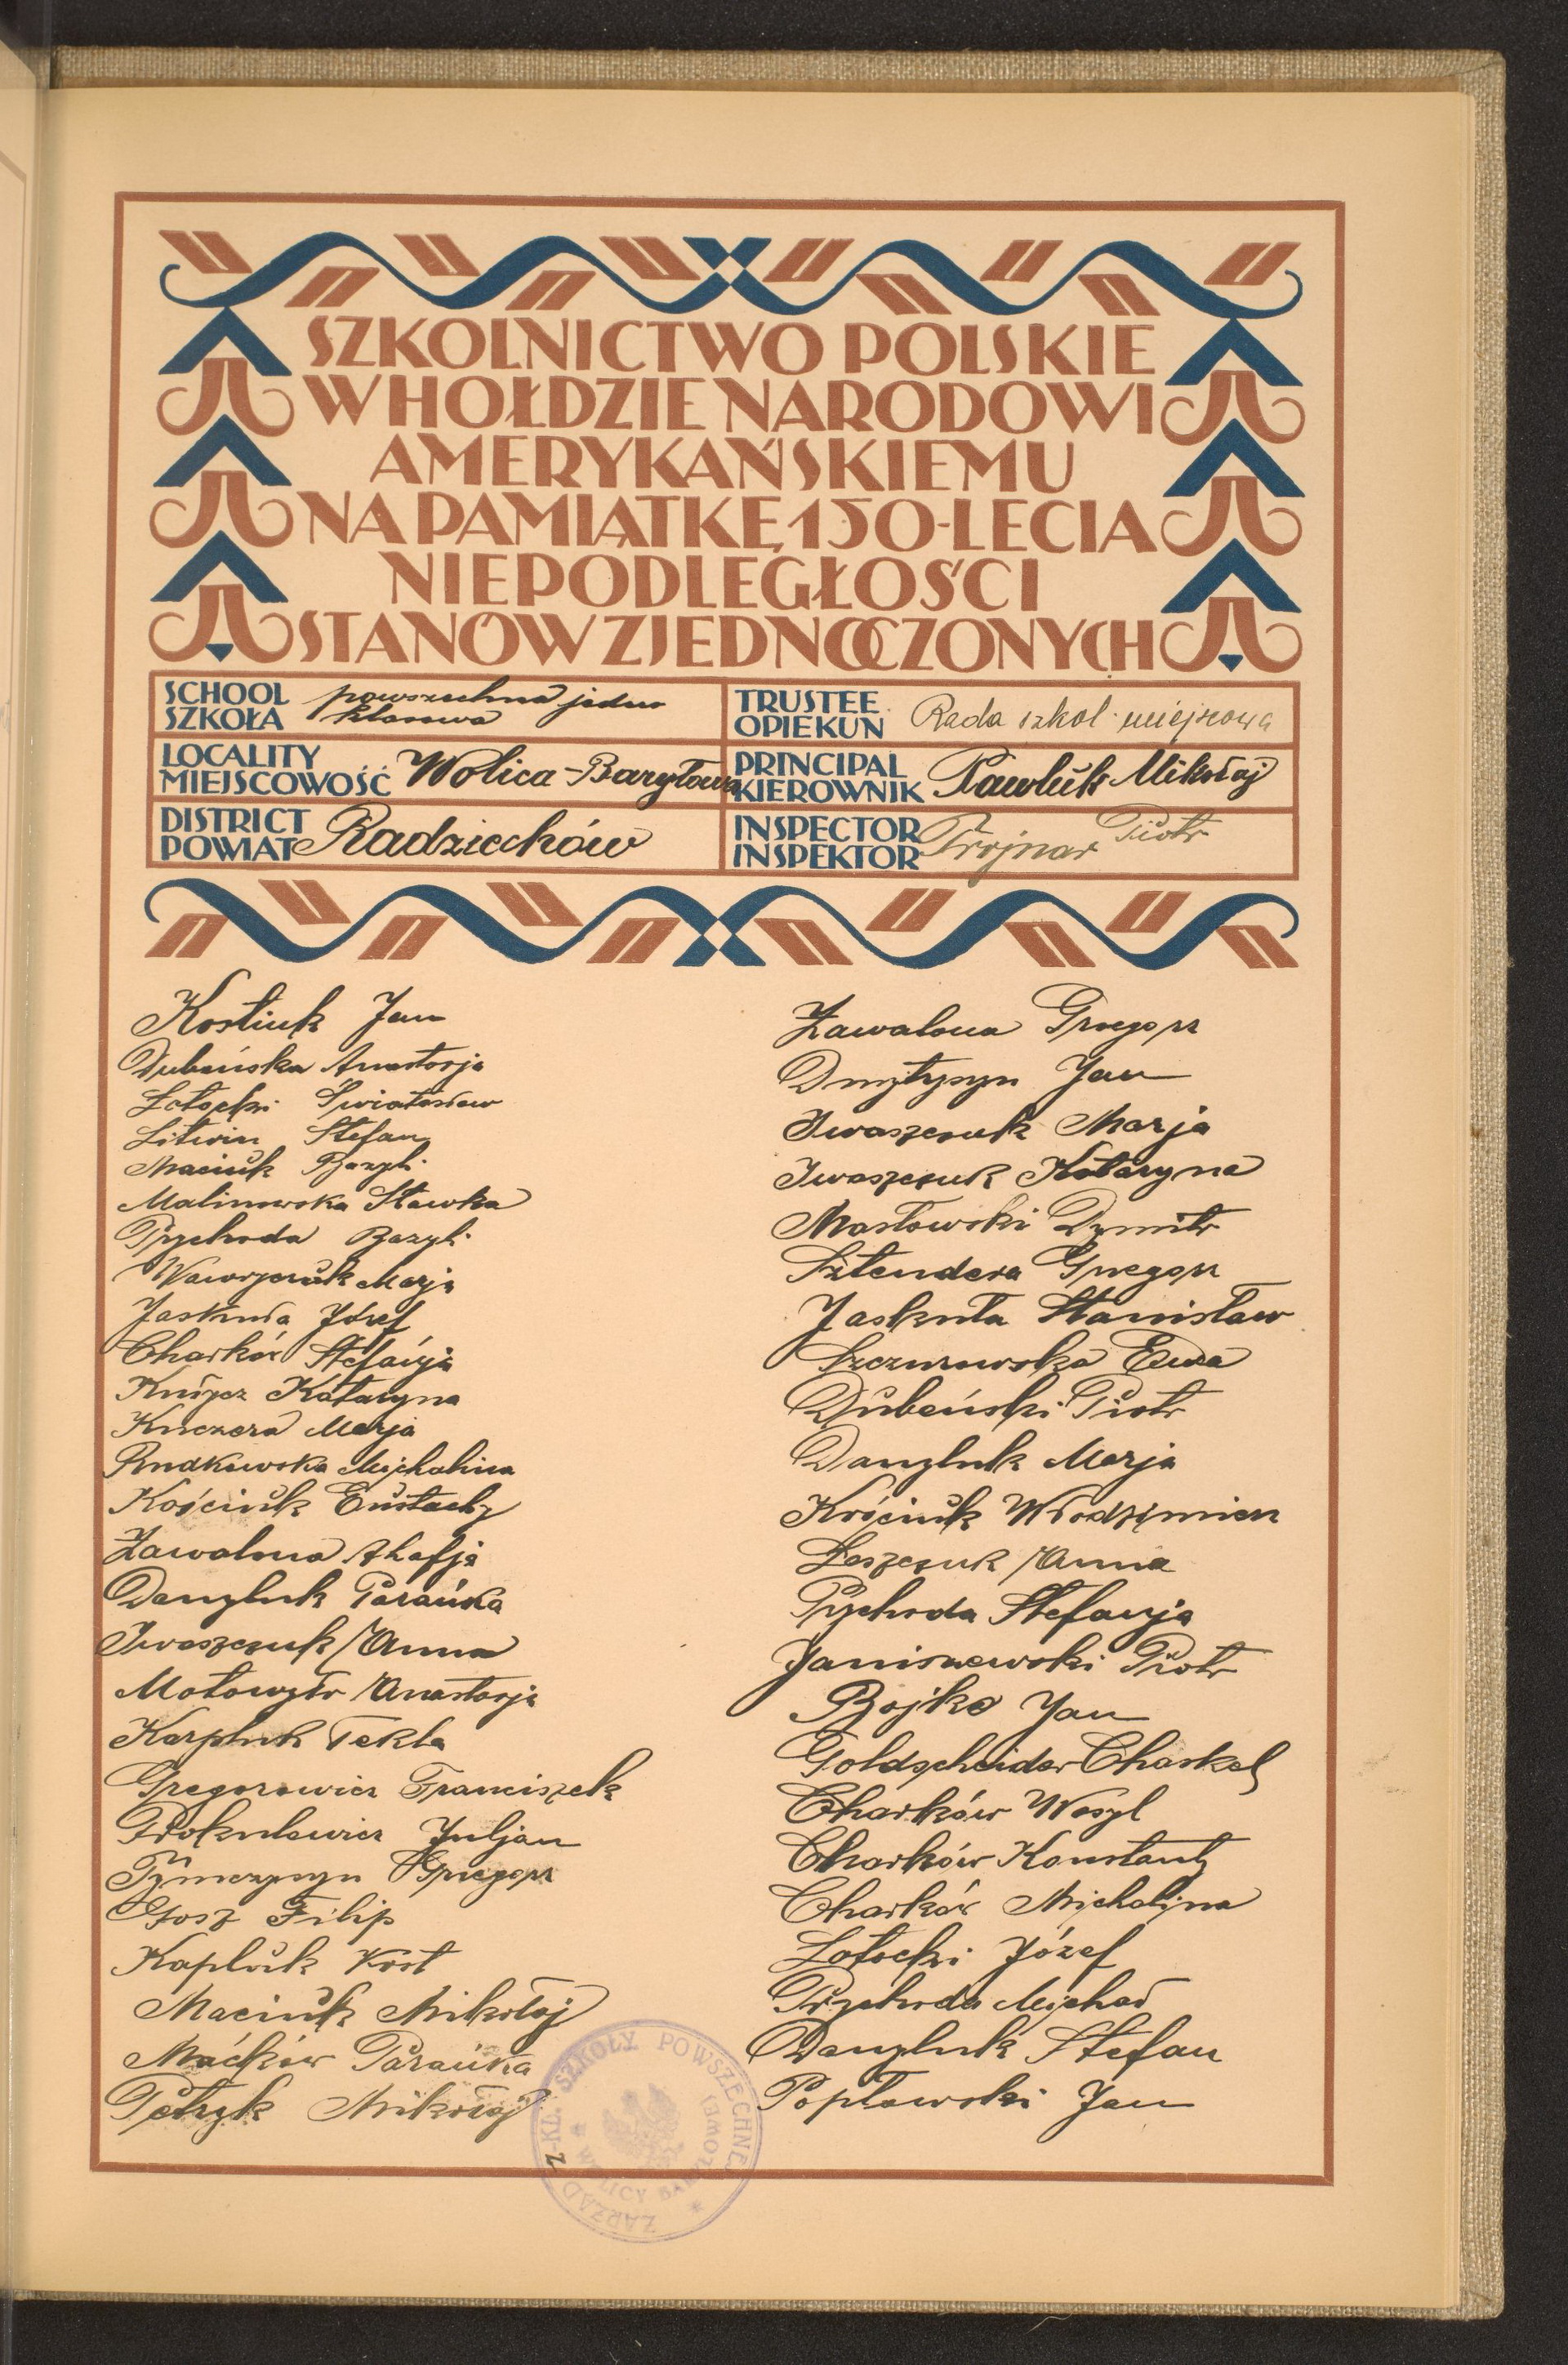 SZKOLNICTWO POLSKIE
W HOŁDZIE NARODOWI
AMERYKAŃSKIEMU
NA PAMIĄTKĘ 150-LECIA
NIEPODLEGŁOŚCI
STANÓW ZJEDNOCZONYCH
SCHOOL
SZKOŁA
powszechna jedno
klasowa
TRUSTEE
OPIEKUN
Rada szkol. miejscowa
LOCALITY
MIEJSCOWOŚĆ
Wolica-Baryłowa
PRINCIPAL
KIEROWNIK
Pawluk Mikołaj
DISTRICT
POWIAT
Radziechów
INSPECTOR
INSPEKTOR
Trójnar Piotr
Kostiuk Jan
Dubeńska Anastazja
Łotocki Światosław
Litwin Stefan
Maciuk Bazyli
Malinowska Sławka
Prychoda Bazyli
Wawryczuk Marja
Jaskuła Józef
Charków Stefanja
Katarzyna
Kuczera Marja
Rudkowska Michalina
Kościuk Eustachy
Zawalna Ahafja
Danyluk Parańka
Iwaszczuk Anna
Motowyło Anastazja
Karpluk Tekla
Gregorowicz Franciszek
Prokulewicz Juljan
Tymczyszyn Grzegorz
Gosz Filip
Kapluk Kost
Maciuk Mikołaj
Maćków Parańka
Petryk Mikołaj
Zawalna Grzegorz
Dmytryszyn Jan
Iwaszczuk Marja
Iwaszczuk Kataryna
Masłowski Dymitr
Sztendera Grzegorz
Jaskuła Stanisław
Szczurowska Ewa
Dubeński Piotr
Danyluk Marja
Kościuk Włodzimierz
Leszczuk Anna
Prychoda Stefanja
Janiszewski Piotr
Bojko Jan
Goldscheider Chaskel
Charków Wasyl
Charków Konstanty
Charków Michalina
Łotocki Józef
Prychoda Michał
Danyluk Stefan
Popławski Jan
ZARZĄD 2-KL. SZKOŁY POWSZECHNEJ
W WOLICY BARYŁOWEJ